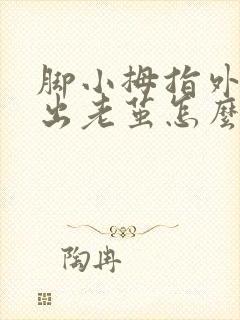 脚小拇指外
出老茧怎麼
陶冉